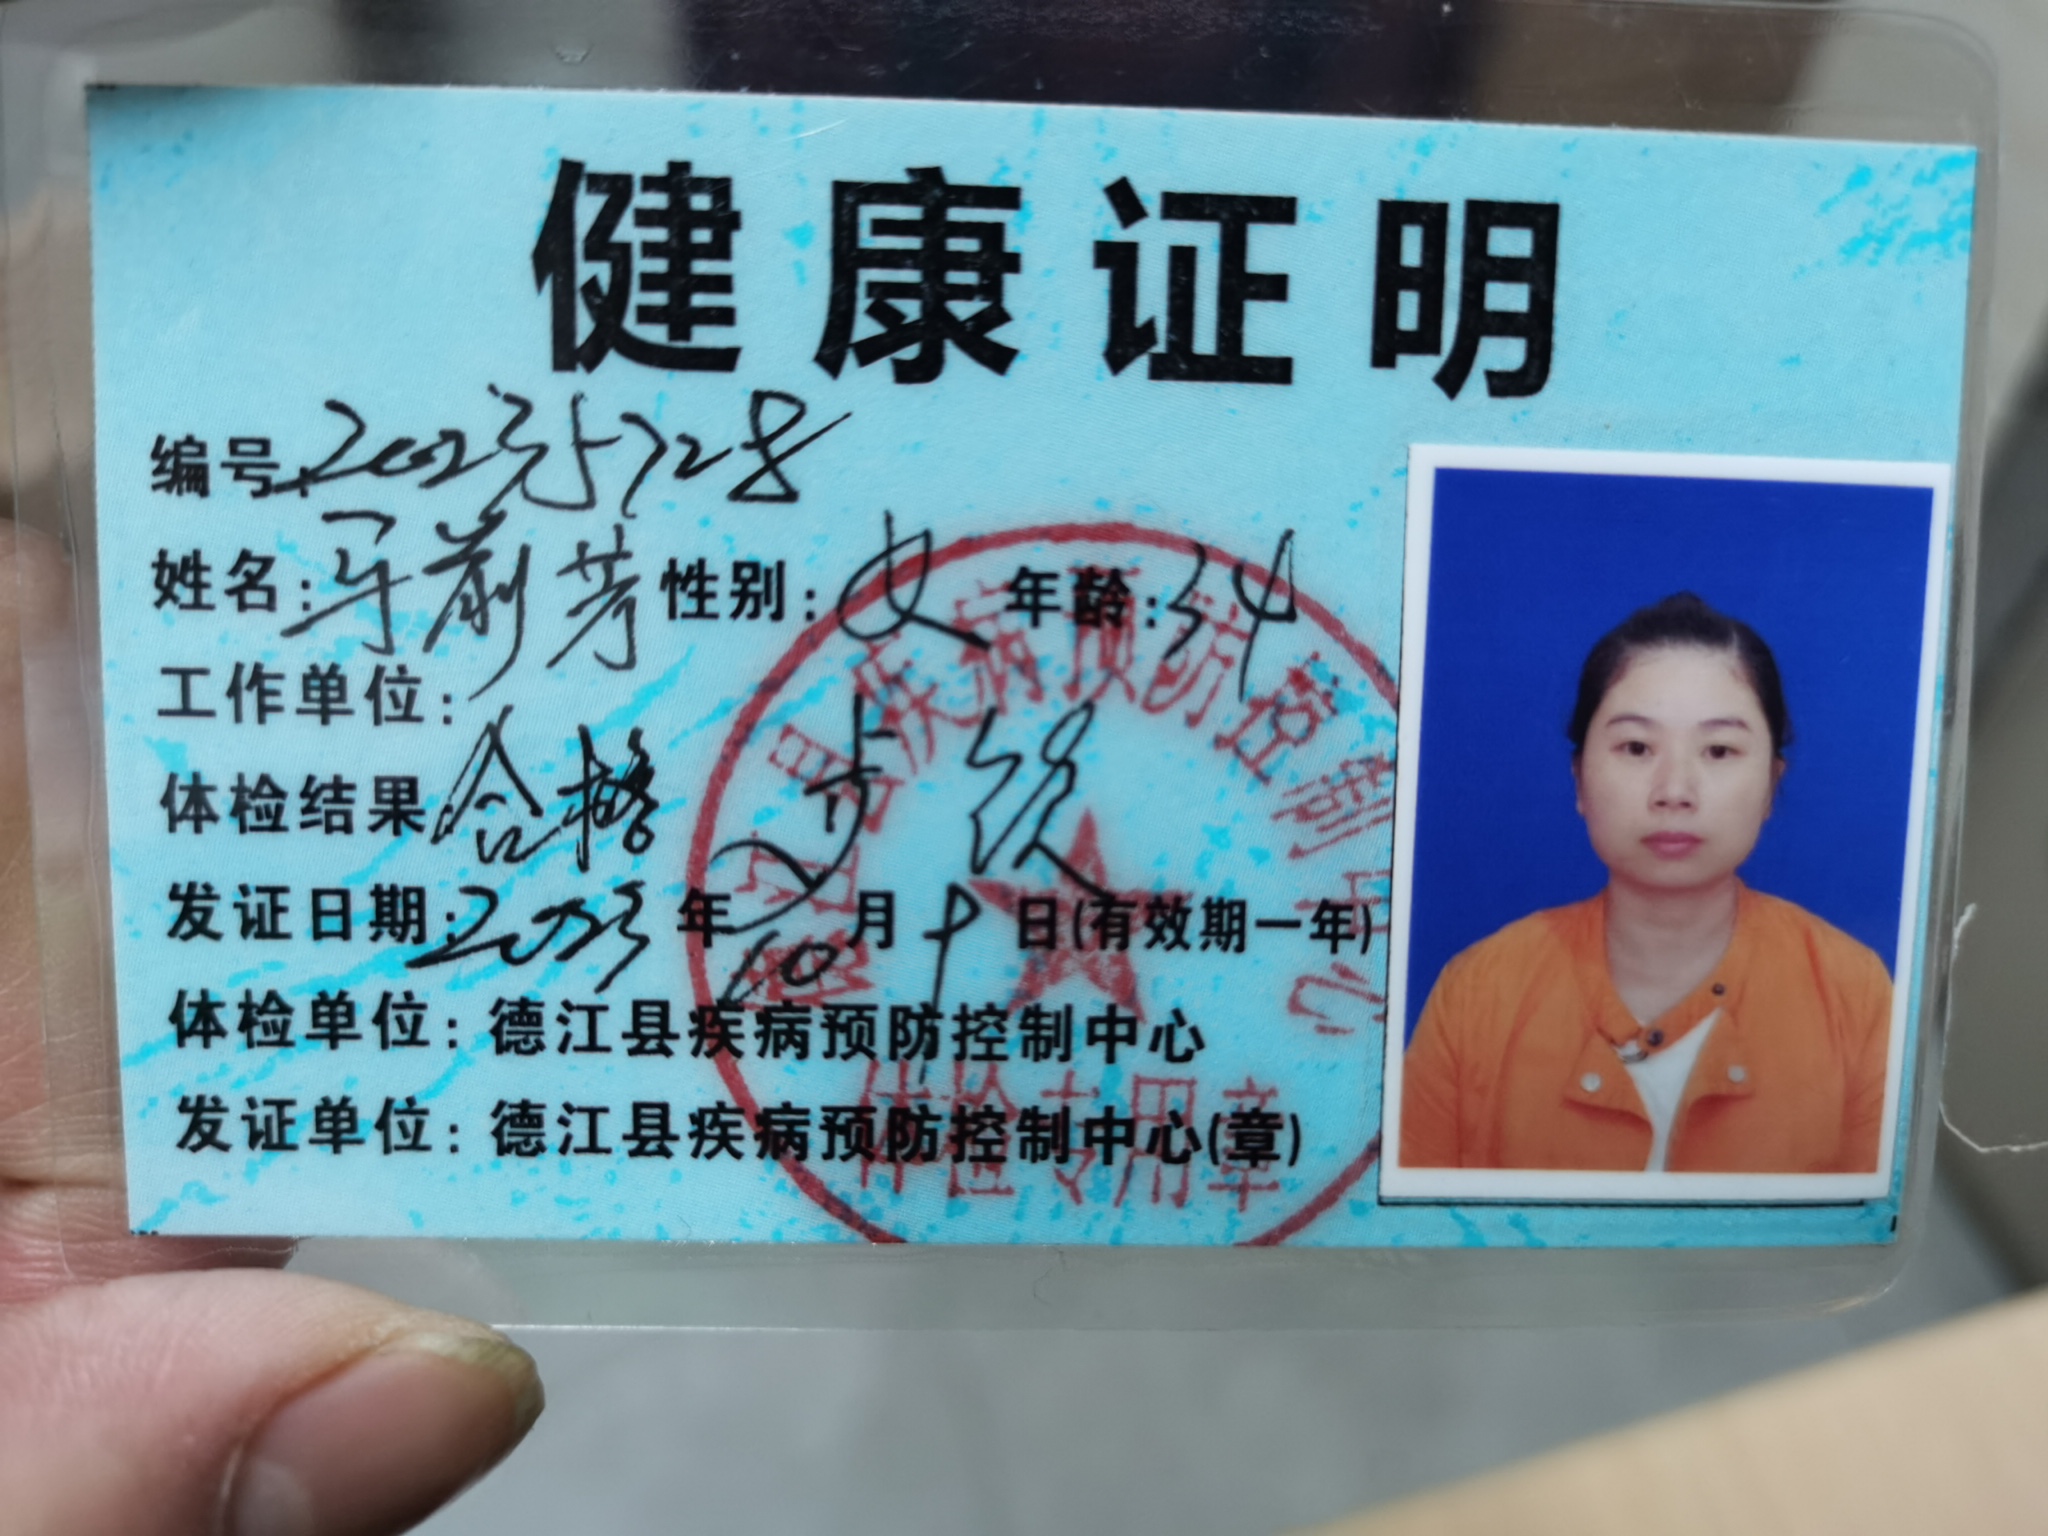 健康证明
编号:
姓名: 芳 性别: 女 年龄: 34
工作单位:
体检结果 合格
发证日期: 2023 年 10 月 日(有效期一年)
体检单位: 德江县疾病预防控制中心
发证单位: 德江县疾病预防控制中心(章)
德江县疾病预防控制中心
体检专用章